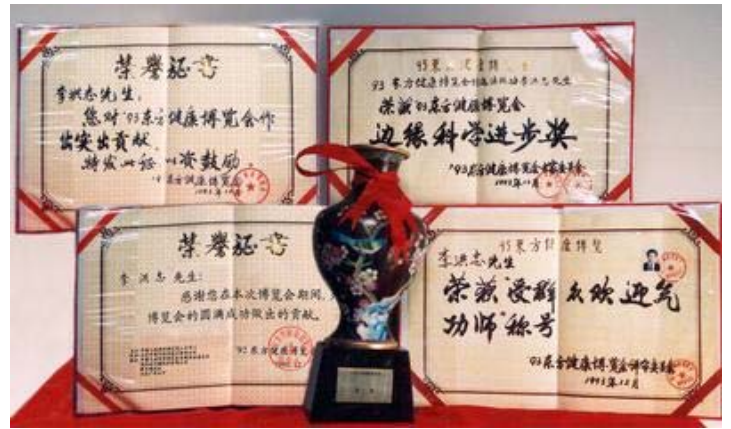 荣誉证书
李洪志先生：
您对'93东方健康博览会作
出突出贡献，
特发此证以资鼓励。
'93东方健康博览会
1993年12月
李洪志先生
荣获'93东方健康博览会
边缘科学进步奖
'93东方健康博览会评审委员会
1993年12月
荣誉证书
李洪志先生:
感谢您在本次博览会期间,
博览会的圆满成功做出的贡献。
东方健康博览
93东方健康博览
李洪志先生
荣获"受群众欢迎气
功师"称号
93东方健康博览会评审委员会
1993年12月